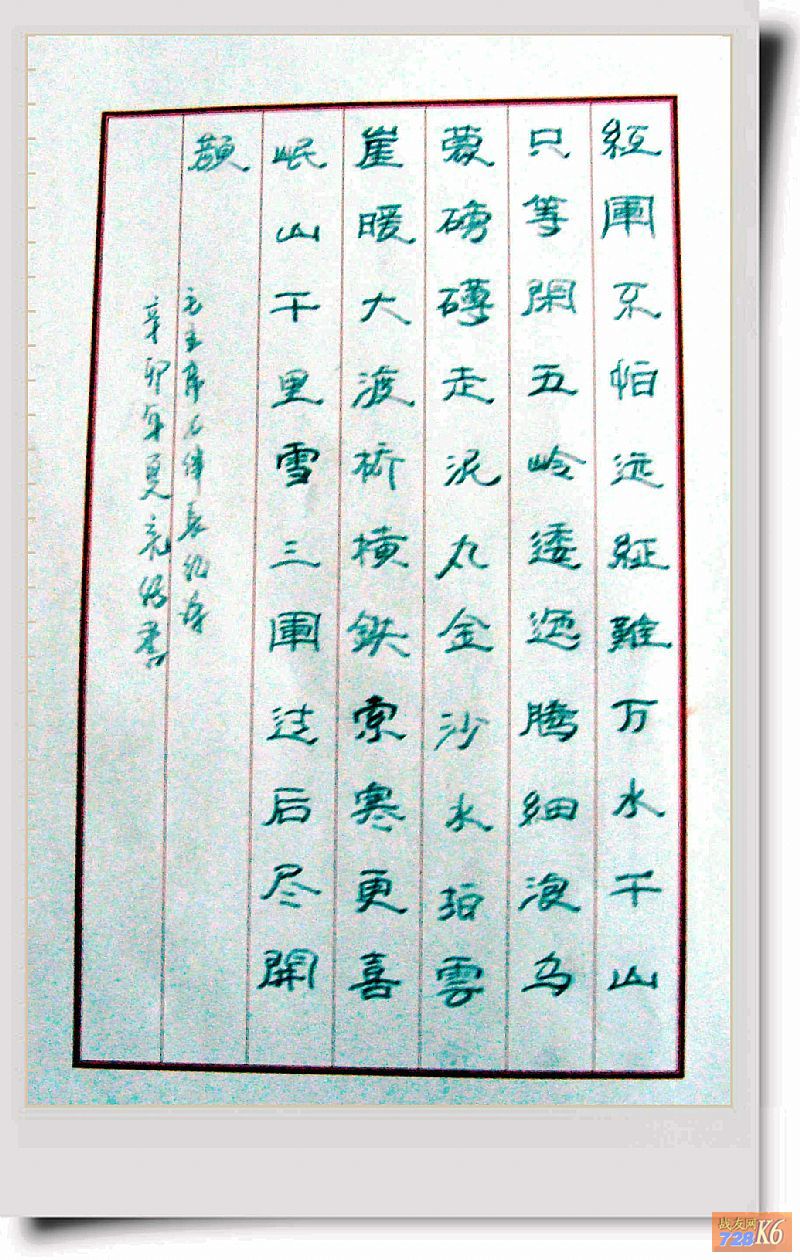 紅軍不怕远征難万水千山
只等閑五岭逶迤腾細浪乌
蒙磅礴走泥丸金沙水拍雲
崖暖大渡桥横鉄索寒更喜
岷山千里雪三軍过后尽開
顔
毛主席七律長征诗
辛卯年夏亮书
战友网
728 K6